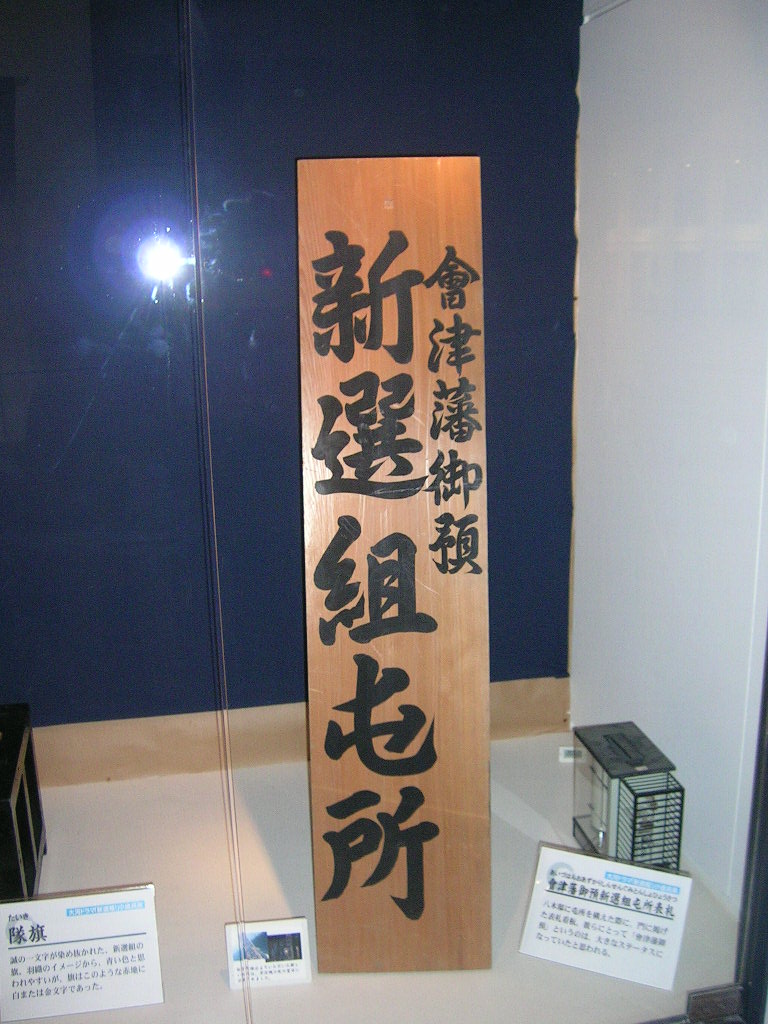 會津藩御預
新選組屯所
たいき
隊旗
誠の一文字が染め抜かれた、新選組の
旗。羽織のイメージから、青い色と思
われやすいが、旗はこのような赤地に
白または金文字であった。
あいづはんおあずかりしんせんぐみとんしょひょうさつ
會津藩御預新選組屯所表札
八木邸に屯所を構えた際に、門に掲げ
た表札看板。彼らにとって「會津藩御
預」というのは、大きなステータスに
なっていたと思われる。